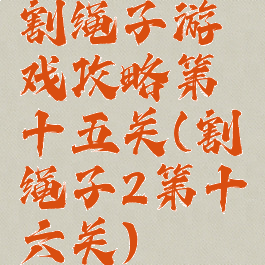 割绳子游
戏攻略第
十五关(割
绳子2第十
六关)